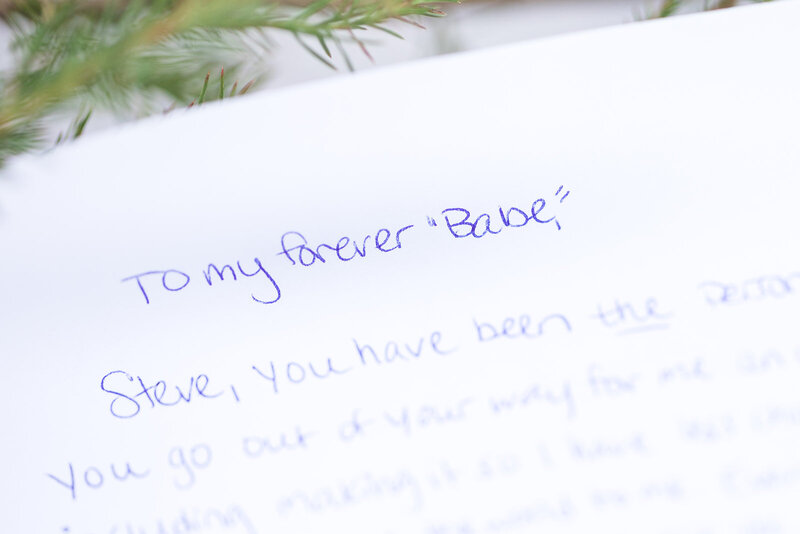 To my forever "Babe,"
Steve, you have been the person
You go out of your way for me an
including making it so I have
the world to me. Every